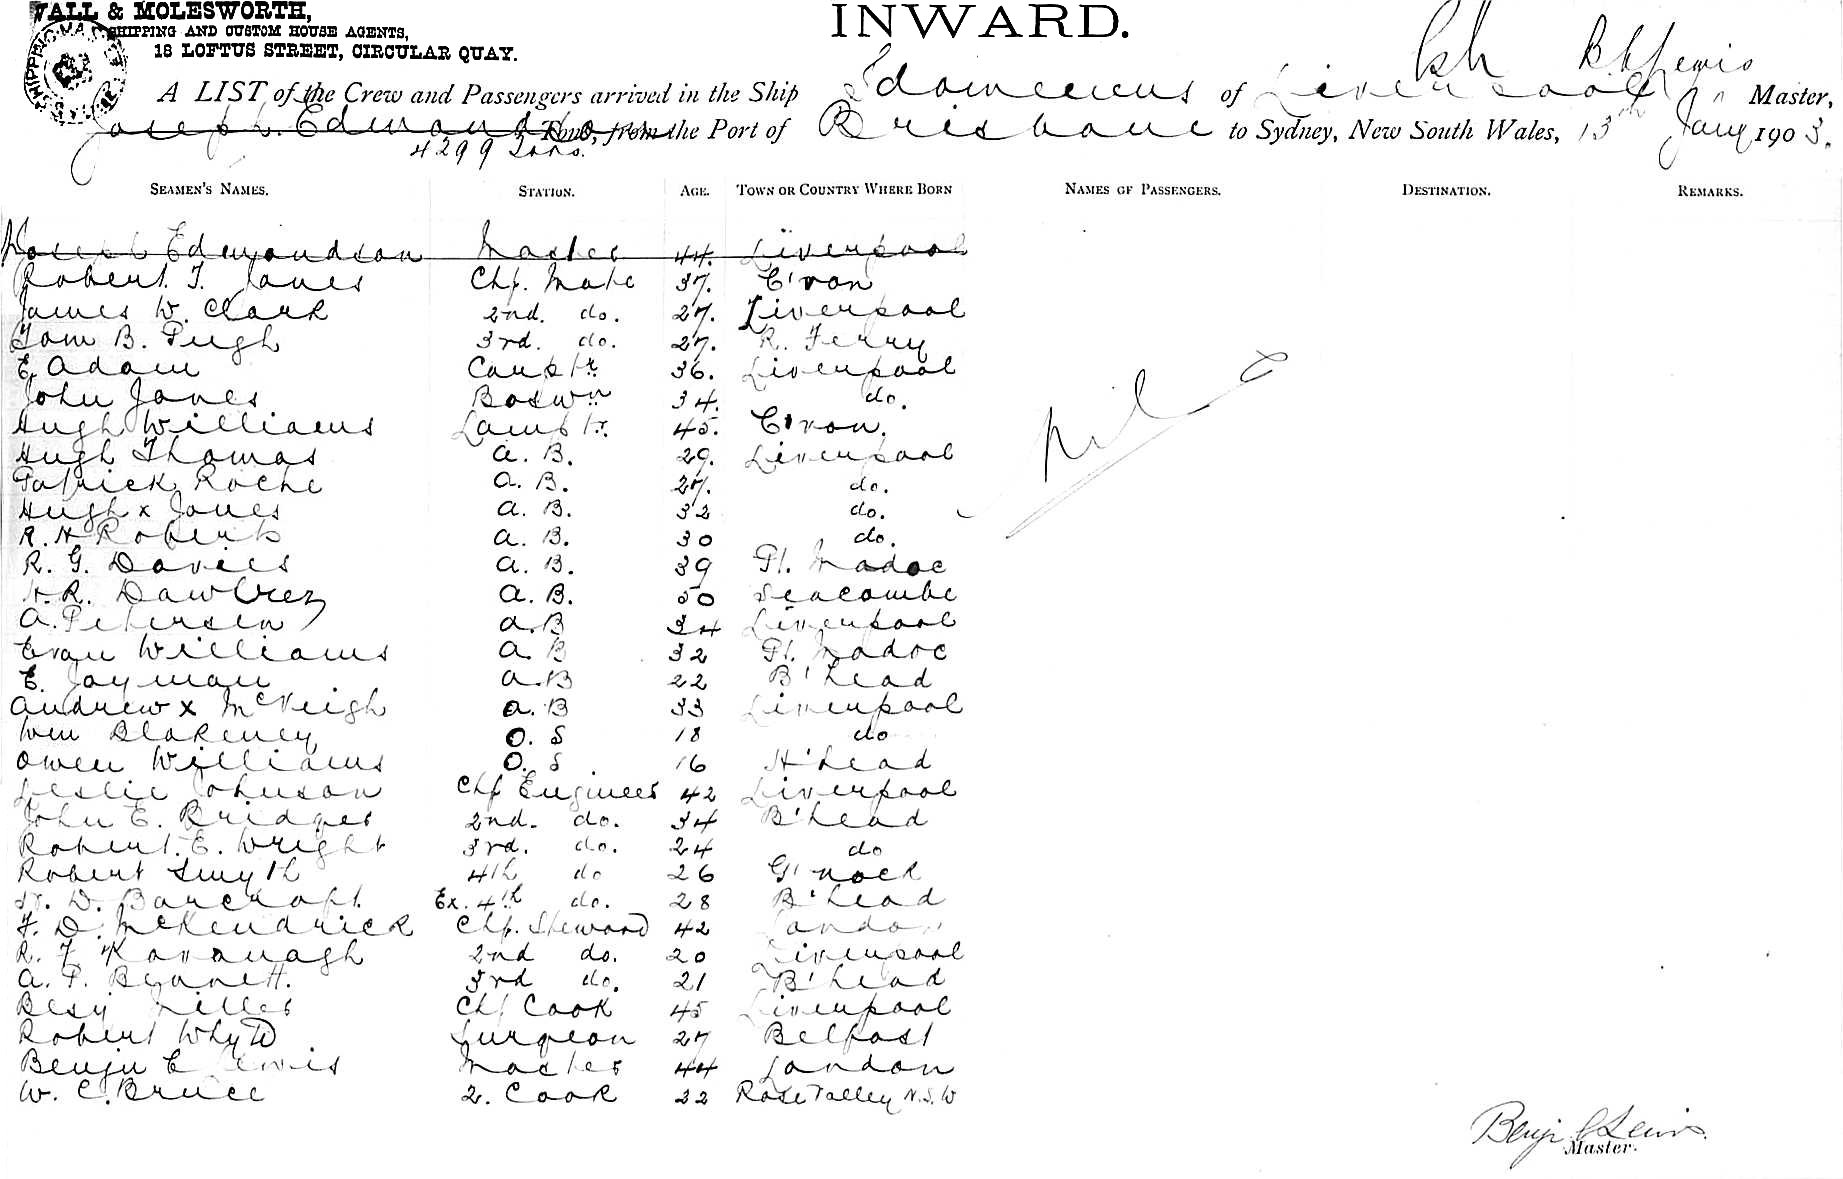 WALL & MOLESWORTH,
SHIPPING AND CUSTOM HOUSE AGENTS,
18 LOFTUS STREET, CIRCULAR QUAY.
INWARD.
B C Lewis
A LIST of the Crew and Passengers arrived in the Ship Idomeneus of Liverpool Master,
Joseph Edmondson Tons, from the Port of Brisbane to Sydney, New South Wales, 13th Jany 1903.
4299 Tons.
SEAMEN'S NAMES. STATION. AGE. TOWN OR COUNTRY WHERE BORN NAMES OF PASSENGERS. DESTINATION. REMARKS.
Joseph Edmondson Master 44. Liverpool
Robert. T. Jones Chf. Mate 37. C'von
James W. Clark 2nd. do. 27. Liverpool
Tom B. Pugh 3rd. do. 27. R. Ferry
E. Adam Carptr. 36. Liverpool
John Jones Boswn 34. do.
Hugh Williams Lamptr. 45. C'von.
Hugh Thomas A. B. 29. Liverpool
Patrick Roche A. B. 27. do.
Hugh x Jones A. B. 32 do.
R. H Roberts A. B. 30 do.
R. G. Davies A. B. 39 Pt. Madoc
H. R. Dawbrez A. B. 50 Seacombe
A. Petersen A. B 34 Liverpool
Evan Williams A. B 32 Pt. Madoc
E. Jayman A. B 22 B'head
Andrew x McVeigh A. B 33 Liverpool
Wm Blakeney O. S 18 do
Owen Williams O. S. 16 H'head
Leslie Johnson Chf Engineer 42 Liverpool
John E. Bridges 2nd. do. 34 B'head
Robert. E. Wright 3rd. do. 24 do
Robert Smyth 4th do 26 G'nock
H. D. Barcroft. Ex. 4th do. 28 B'head
F. D. McKendrick Chf. Steward 42 London
R. F Kavanagh 2nd do. 20 Liverpool
A. P. Bennett. 3rd do. 21 B'head
Besy Miller Chf Cook 45 Liverpool
Robert Whyte Surgeon 27 Belfast
Benjn C Lewis Master 44 London
W. C. Bruce 2. Cook 22 Rose Valley N.S.W
Nil
Benj. C Lewis.
Master.